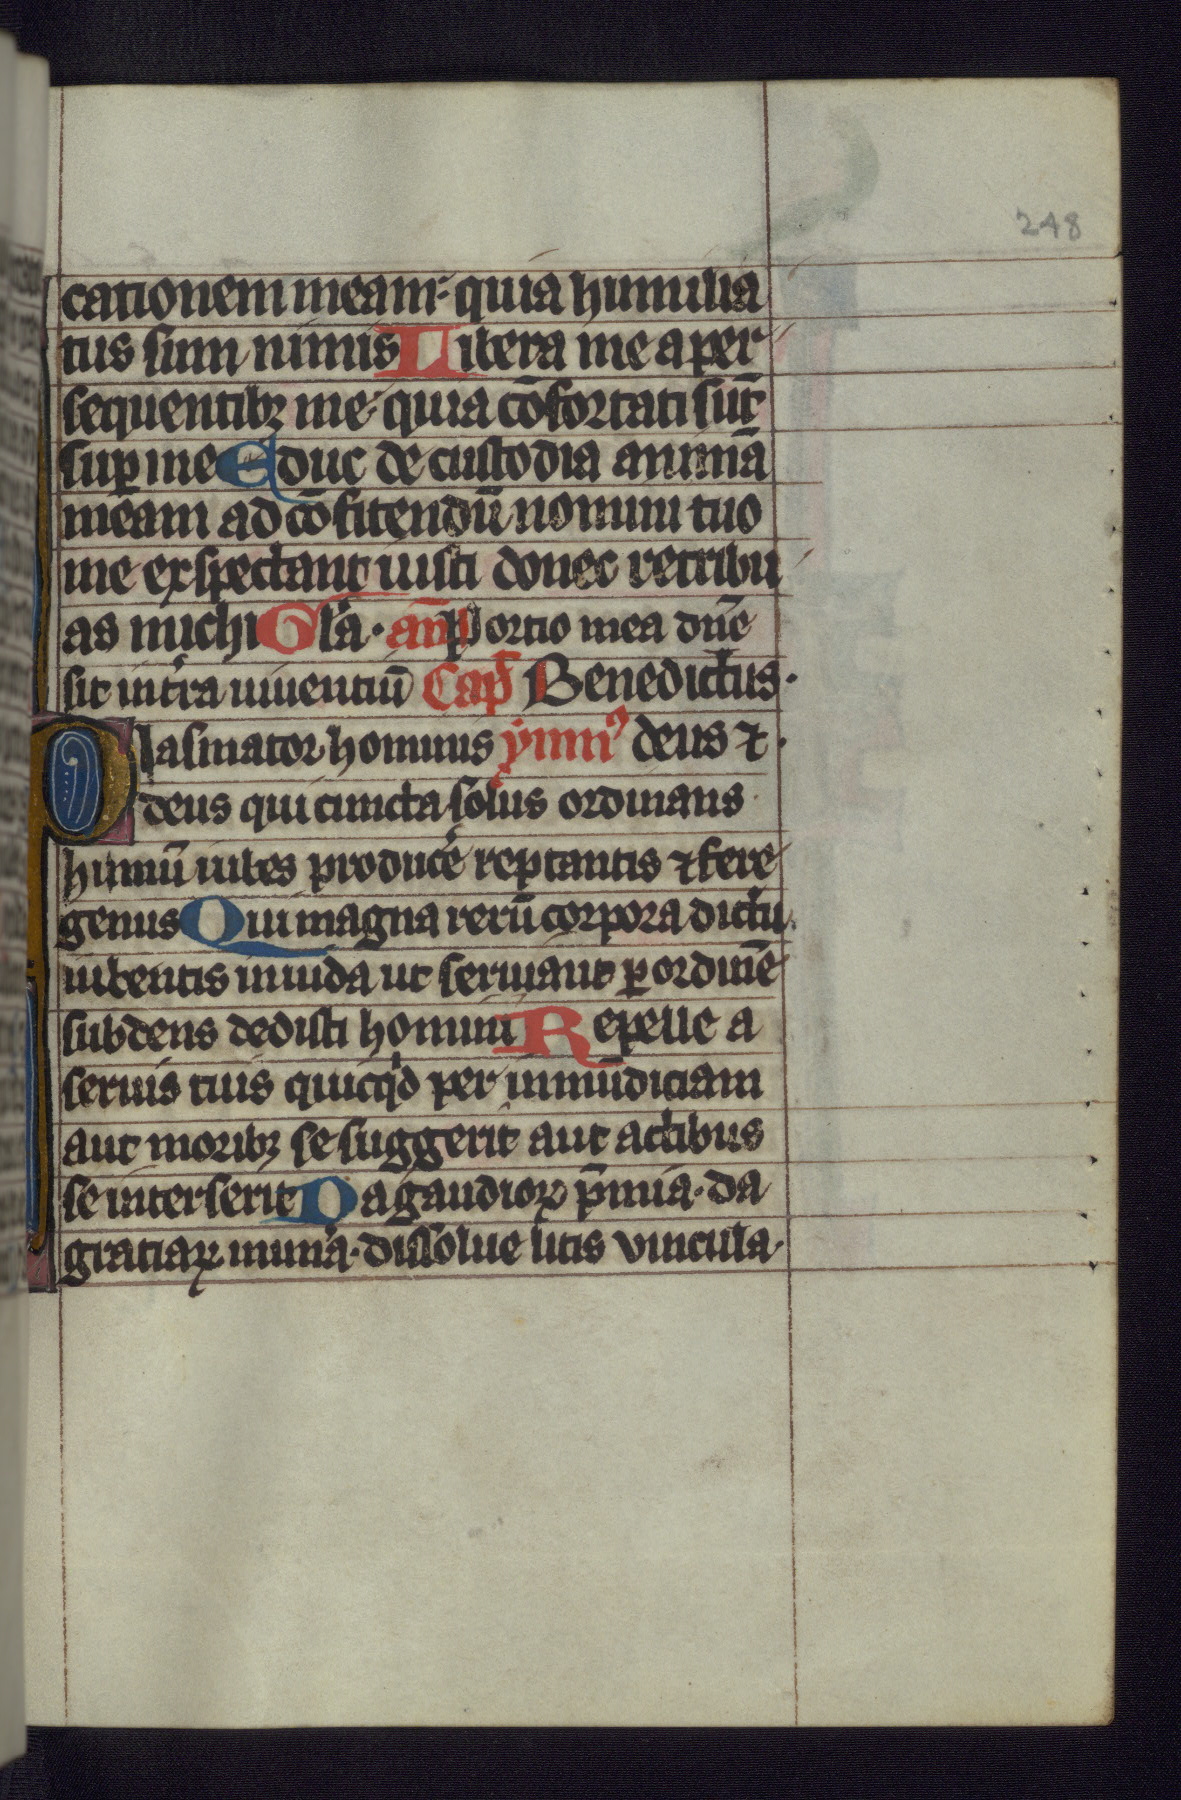 248
cationem meam: quia humilia
tus sum nimis Libera me a per
sequentibꝫ me: quia cōfortati sūt
suꝑ me Educ de custodia animā
meam ad cōfitendū nomini tuo
me exspectant iusti donec retribu
as michi Gl̄a. añ Portio mea dn̄e
sit in tr̄a uiuentiū Cap̄ Benedictus.
Plasmator hominis ymnꝰ deus ⁊.
deus qui cuncta solus ordinans
humū iubes producē reptantis ⁊ fere
genus Qui magna rerū corpora dictu
iubentis uiuida ut seruiant ꝑ ordinē
subdens dedisti homini Repelle a
seruis tuis quicq̇d per inmūdiciam
aut moribꝫ se suggerit aut actibus
se interserit Da gaudioꝝ p̄mia. da
gratiaꝝ mun̄a. dissolue litis vincula.